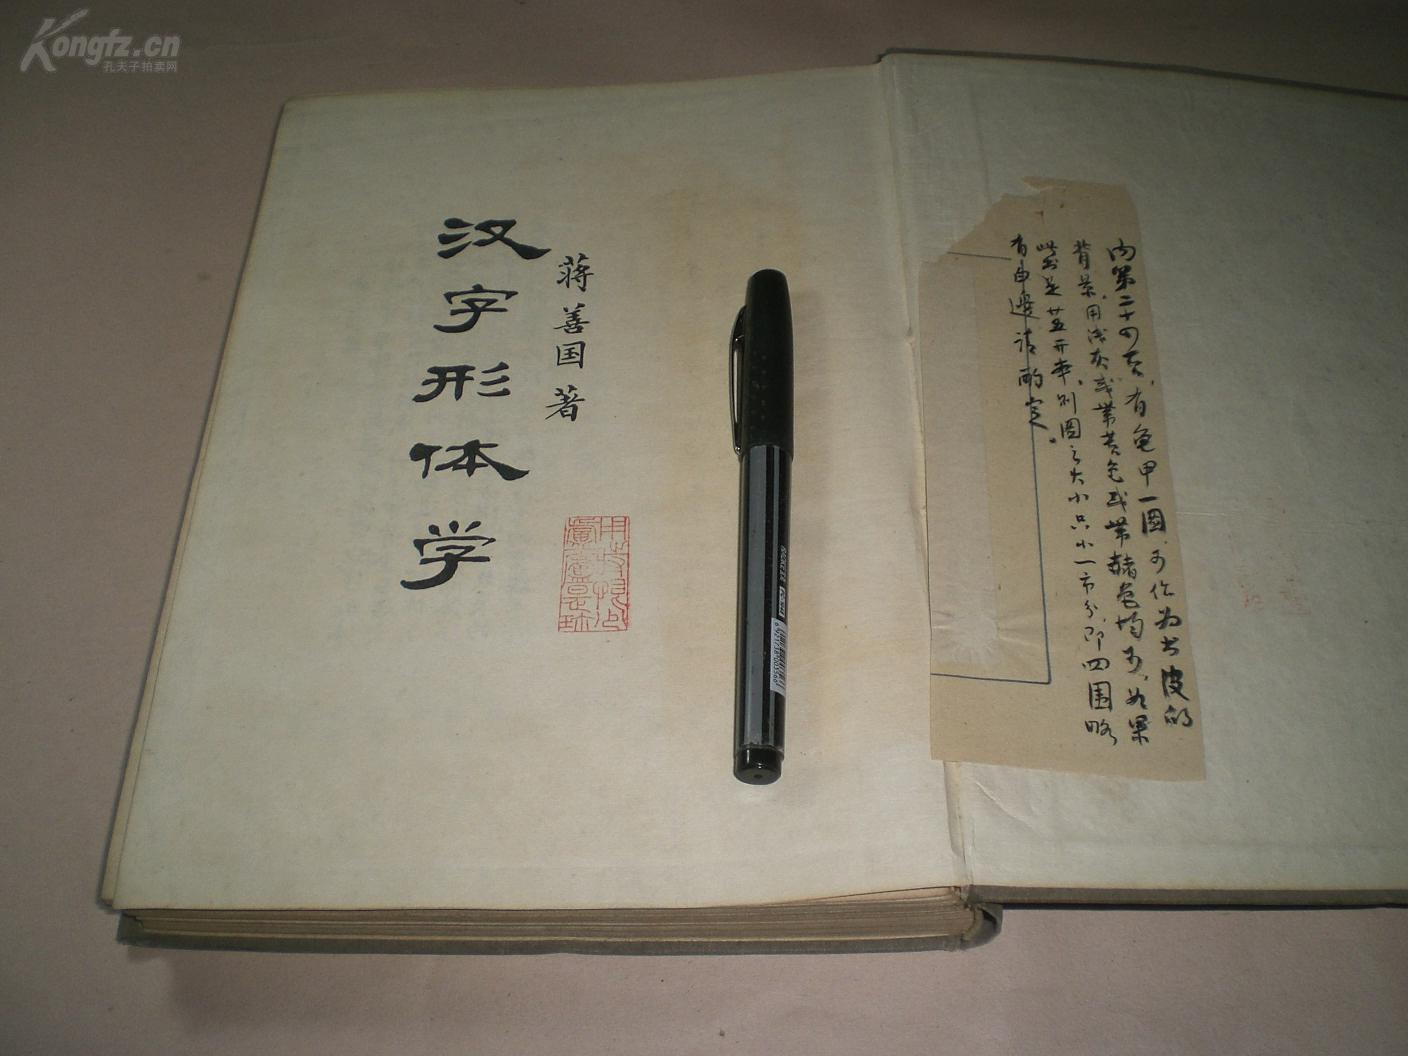 Kongfz.cn
孔夫子拍卖网
汉字形体学
蒋善国著
内第二十四页,有龟甲一图,可作为书皮的
背景,用浅灰或带黄色或带赭色均可,如果
此书是廿五开本,则图之大小只小一市分,即四围略
有由边请酌定。
6921738003560